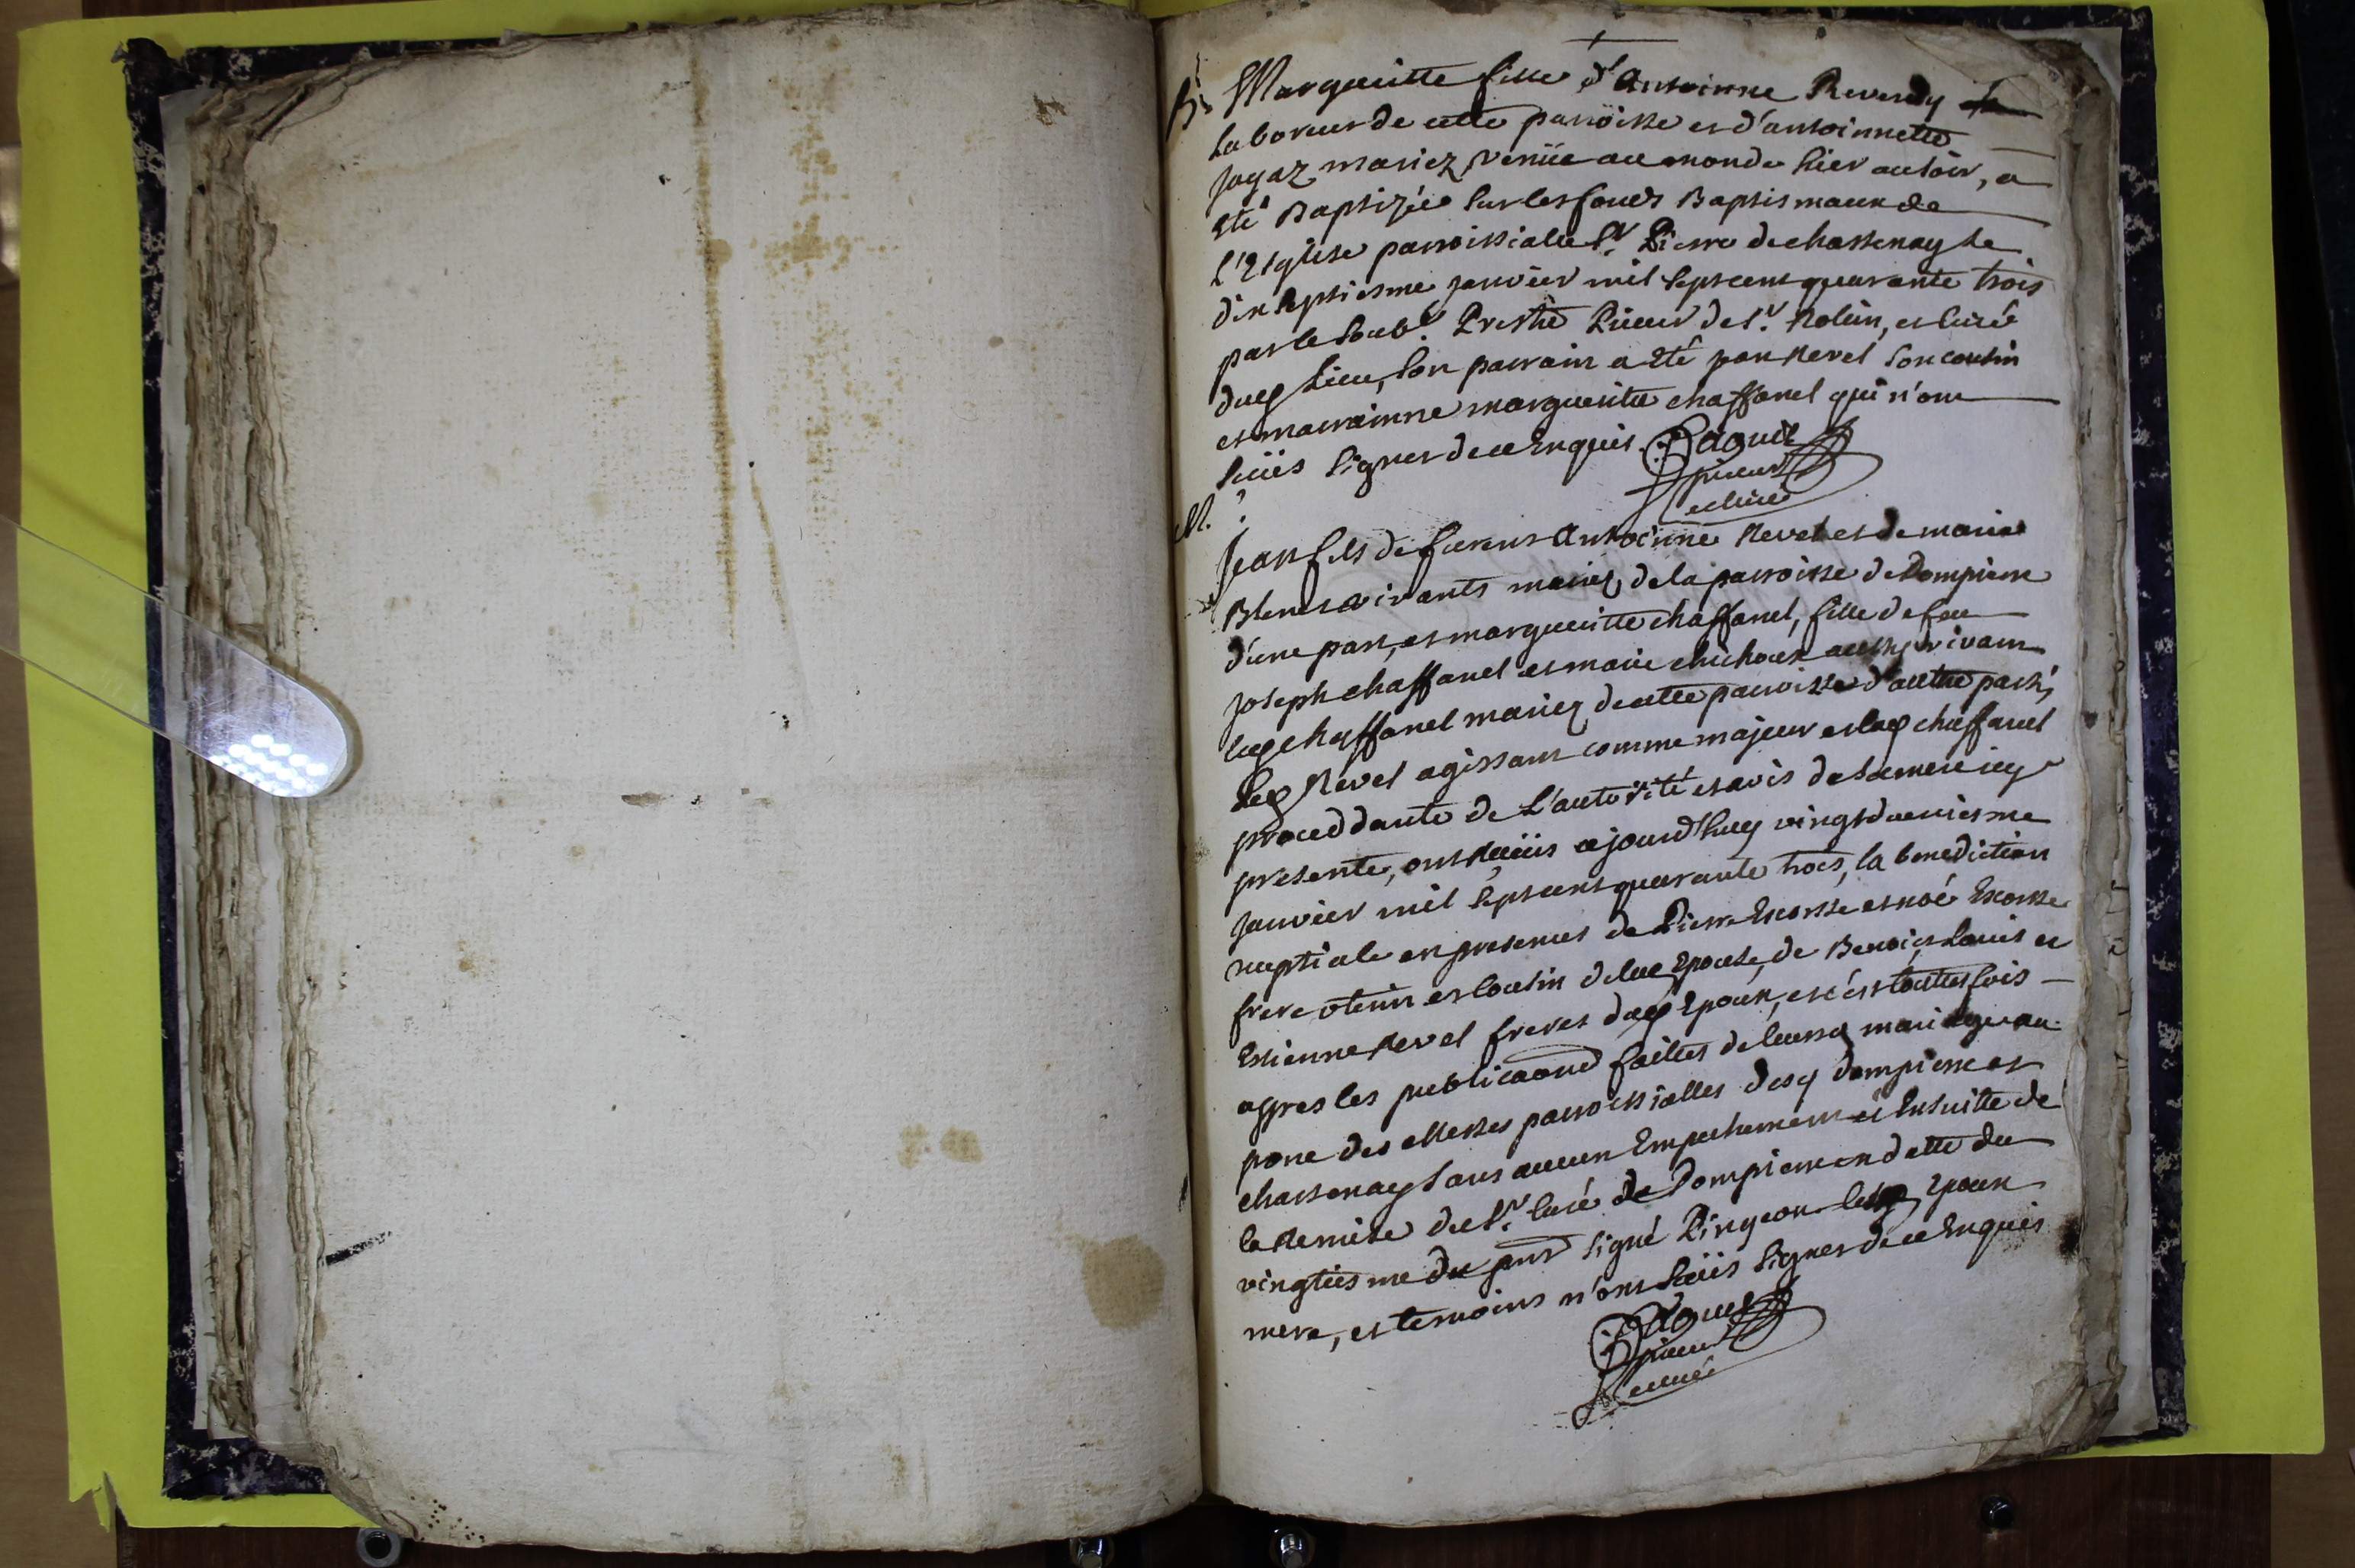 Bs Margueritte fille d'Antoinne Reverdy
Laboreur de cette parroisse et d'antoinnette
Jayaz mariez, venüe au monde hier au soir, a
eté Baptizée sur les fonds Baptismaux de
L'Eglise parroissialle St Pierre de chassenay le
dixseptiesme janvier mil septcent quarante trois
par le soubt Prestre Prieur de St Rolin, et curé
dudt Lieu, son parrain a eté jean Revel son cousin
et marrainne margueritte chaffanel qui n'ont
sçüs signer de ce Enquis Daguet
prieur
et curé
M.
Jean fils de furent Antoinne Revel et de marie
vivants mariez de la parroisse de Dompierre
d'une part, et margueritte chaffanel, fille de feu
joseph chaffanel et marie chichoux vivant
chaffanel mariez de cette parroisse d'autre part,
Revel agissant comme majeur et chaffanel
proceddante de L'autorité et avis de sa mere icy
presente, ont reçus ajourd'huy vingtdeuxiesme
janvier mil septcent quarante trois, la benediction
nuptiale en presences de Pierre Escosse et noé Escosse
frere vterin et cousin de Epouse, de Benoist, Louis et
Estienne Revel freres Epoux, et c'est touttes fois
appres les publicaons faittes de mariage au
prone des Messes parroissialles Dompierre et
chassenay sans aucun Empechement et Ensuitte de
la Remise du Sr curé de Dompierre en datte du
vingtiesme du pnt signé Pingeon Epoux
mere, et temoins n'ont sçüs signer de ce Enquis
Daguet
prieur
et curé